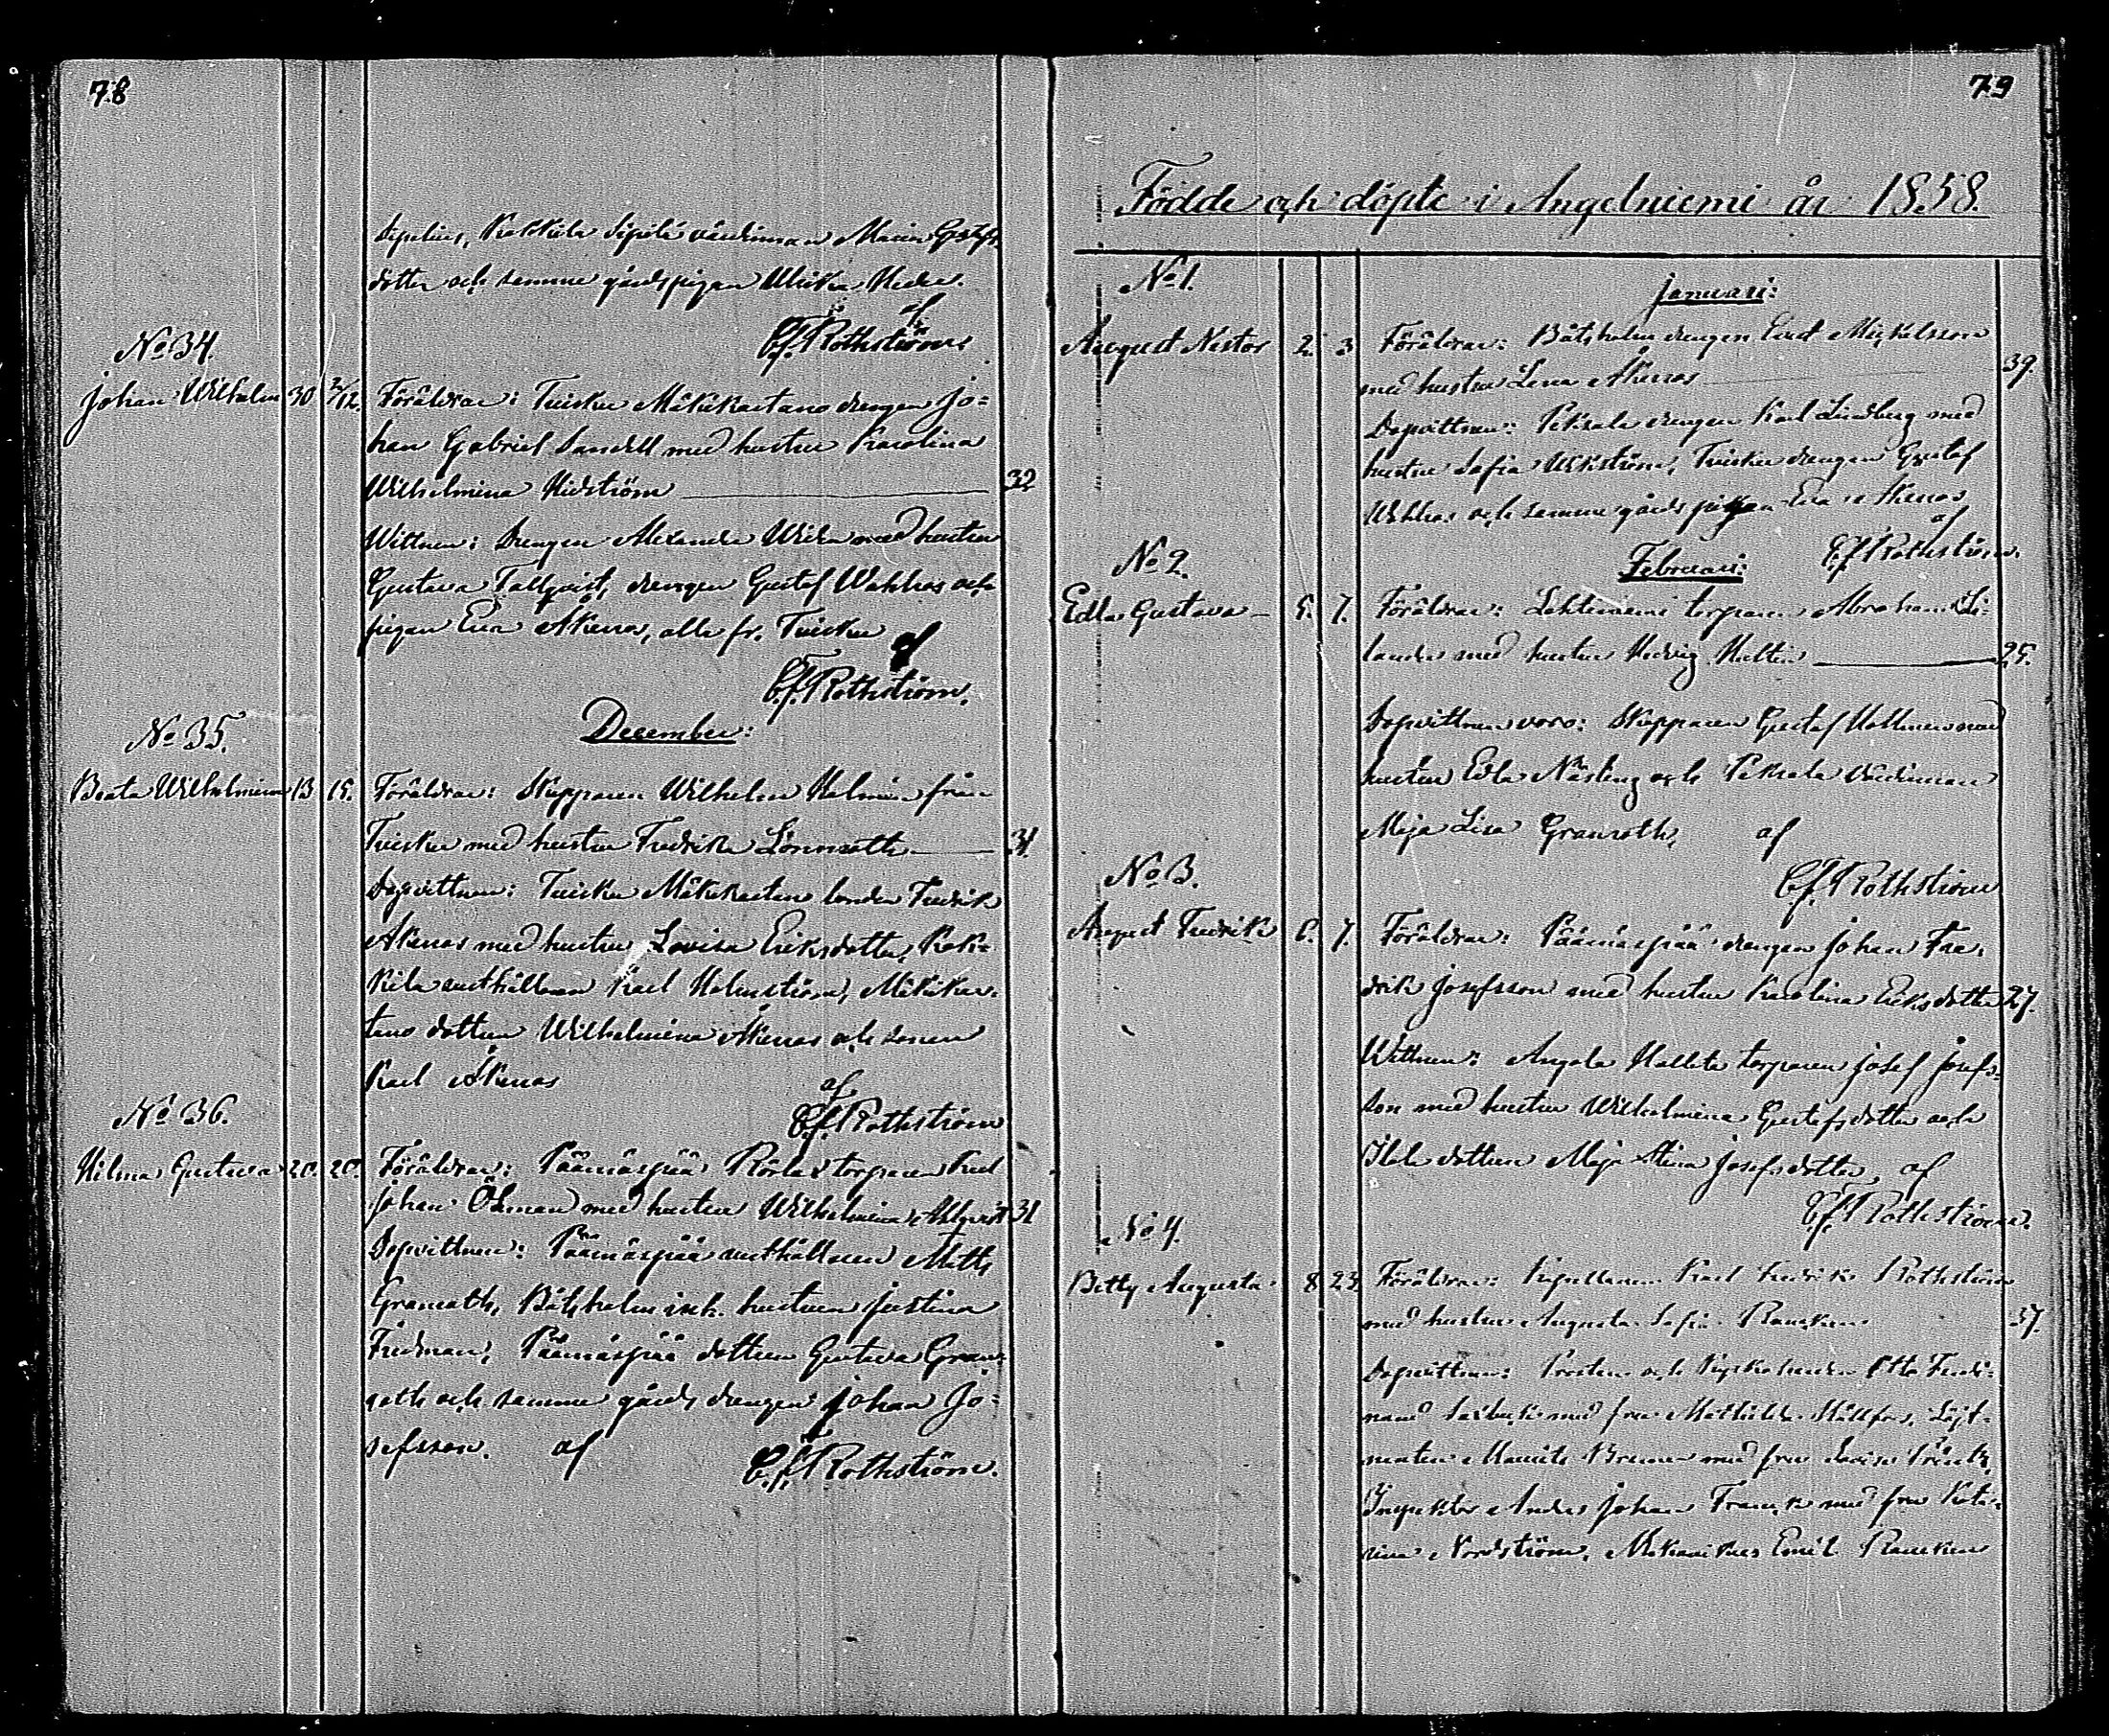 78
Sipelius, Kokkila Sipilä värdinnan Maria Gustafs-
dotter och samma gårds pigan Ulrika Hede.
af
C.f. Rothström.
No 34.
Johan Wilhelm 30 2/12. Föräldrar: Tuisku Mäkikartano drengen Jo=
han Gabriel Sandell med hustru Karolina
Wilhelmina Hidström 32
Wittnen: Drengen Alexander Widen med hustru
Gustava Tallqvist, drengen Gustaf Wahlros och
pigan Eva Åkerros, alla fr. Tuisku
af
C.f. Rothström.
December:
No 35.
Beata Wilhelmina 13 15. Föräldrar: Skepparen Wilhelm Helmin från
Tuisku med hustru Fredrika Lönnroth 31.
Dopvittnen: Tuisku Mäkikartano bonden Fredrik
Åkerros med hustru Lovisa Eriksdotter, Kok=
kila rusthållaren Karl Holmström, Mäkikar=
tano dottren Wilhelmina Åkerros och sonen
Karl Åkerros
af
C.f. Rothström
No 36.
Hilma Gustava 20. 20. Föräldrar: Päärnäspää torparen Karl
Johan Öhman med hustru Wilhelmina Ahlqvist 31
Dopvittnen: Päärnäspää rusthållaren Matts
Granroth, Båtsholm hustrun Justina
Fredman, Päärnäspää dottren Gustava Gran=
roth och samma gårds drengen Johan Jo=
sefsson. af
C.f. Rothström.
79
Födde och döpte i Angelniemi år 1858.
No 1.
Januari:
August Nestor 2. 3 Föräldrar: Båtsholm drengen Mickelsson
med hustru Lena Åkerros 39.
Dopvittnen: Peksala drengen Karl Lindberg med
hustru Sofia Wikström, Tuisku drengen Gustaf
Wahlros och samma gårds pigan Eva Åkerros
af
C.f. Rothström.
Februari:
No 2.
Edla Gustava 5. 7. Föräldrar: Lahtiniemi torparen Abraham Se=
lander med hustru Hedvig Hultin 25.
Dopvittnen voro: Skepparen Gustaf med
hustru Edla Näsling och Peksala värdinnan
Maja Lisa Granroth, af
C.f. Rothström
No 3.
August Fredrik 6. 7. Föräldrar: Päärnäspää drengen Johan Fre=
drik Josefsson med hustru Karolina Eriksdotter 27.
Wittnen: Angela torparen Josef Josefs=
son med hustru Wilhelmina Gustafsdotter och
dottren Maja Stina Josefsdotter, af
C.f. Rothström.
No 4.
Betty Augusta 8 23 Föräldrar: Kapellanen Karl Fredrik Rothström
med hustru Augusta Sofia Rancken 37.
Dopvittnen: Prosten och Kyrkoherden Otto Ferdi=
nand med fru Mathilda Stållfors, Löjt=
nanten Mauritz med fru Lovisa
Inspektor Anders Johan Franck med fru Kata=
rina Nordström, Mekanikus Emil Rancken